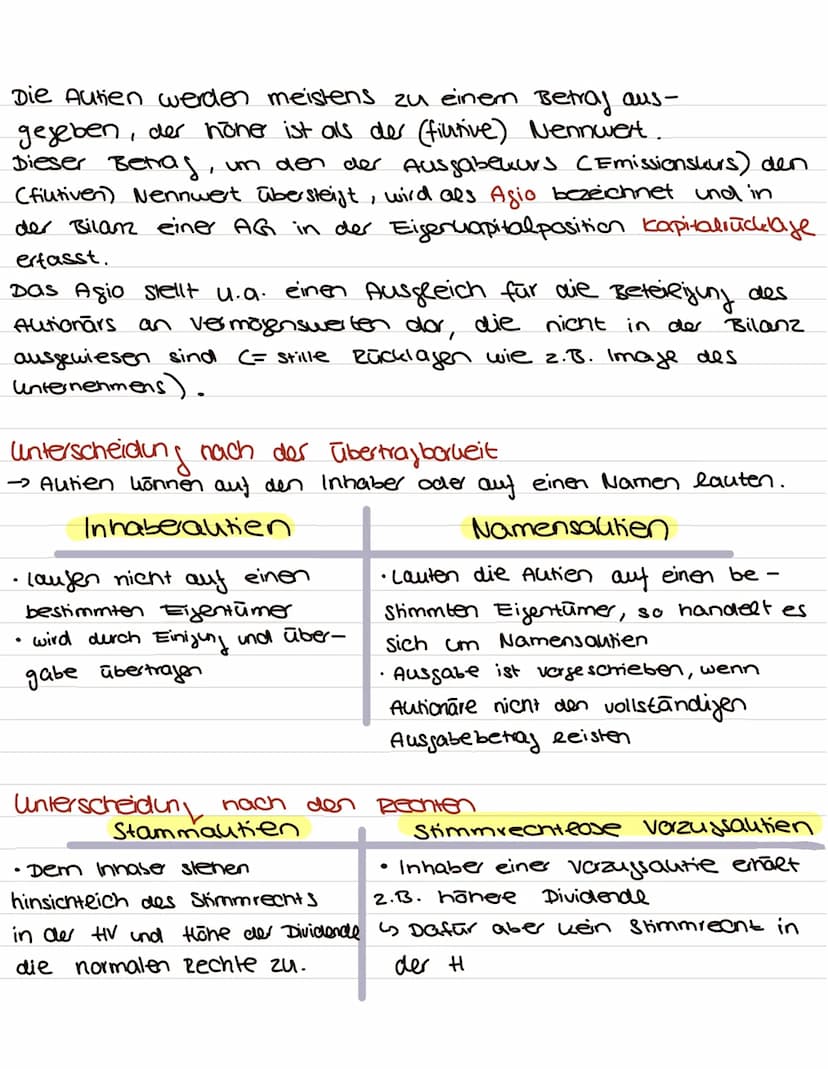 Die Aktien werden meistens zu einem Betrag aus-
gegeben, der höher ist als der (fiktive) Nennwert.
Dieser Betrag, um den der Ausgabekurs (Emissionskurs) den
(fiktiven) Nennwert übersteigt, wird als Agio bezeichnet und in
der Bilanz einer AG in der Eigenkapitalposition Kapitalrücklage
erfasst.
Das Agio stellt u.a. einen Ausgleich für die Beteiligung des
Aktionärs an Vermögenswerten dar, die nicht in der Bilanz
ausgewiesen sind (= stille Rücklagen wie z.B. Image des
Unternehmens).
Unterscheidung nach der Übertragbarkeit
→ Aktien können auf den Inhaber oder auf einen Namen lauten.
Inhaberaktien
• laufen nicht auf einen
bestimmten Eigentümer
• wird durch Einigung und Über-
gabe übertragen
Namensaktien
• Lauten die Aktien auf einen be-
stimmten Eigentümer, so handelt es
sich um Namensaktien
• Ausgabe ist vorgeschrieben, wenn
Aktionäre nicht den vollständigen
Ausgabebetrag leisten
Unterscheidung nach den Rechten
Stammaktien
• Dem Inhaber stehen
hinsichtlich des Stimmrechts
in der HV und Höhe der Dividende
die normalen Rechte zu.
Stimmrechtlose Vorzugsaktien
• Inhaber einer Vorzugsaktie erhält
z.B. höhere Dividende
↳ Dafür aber kein Stimmrecht in
der H